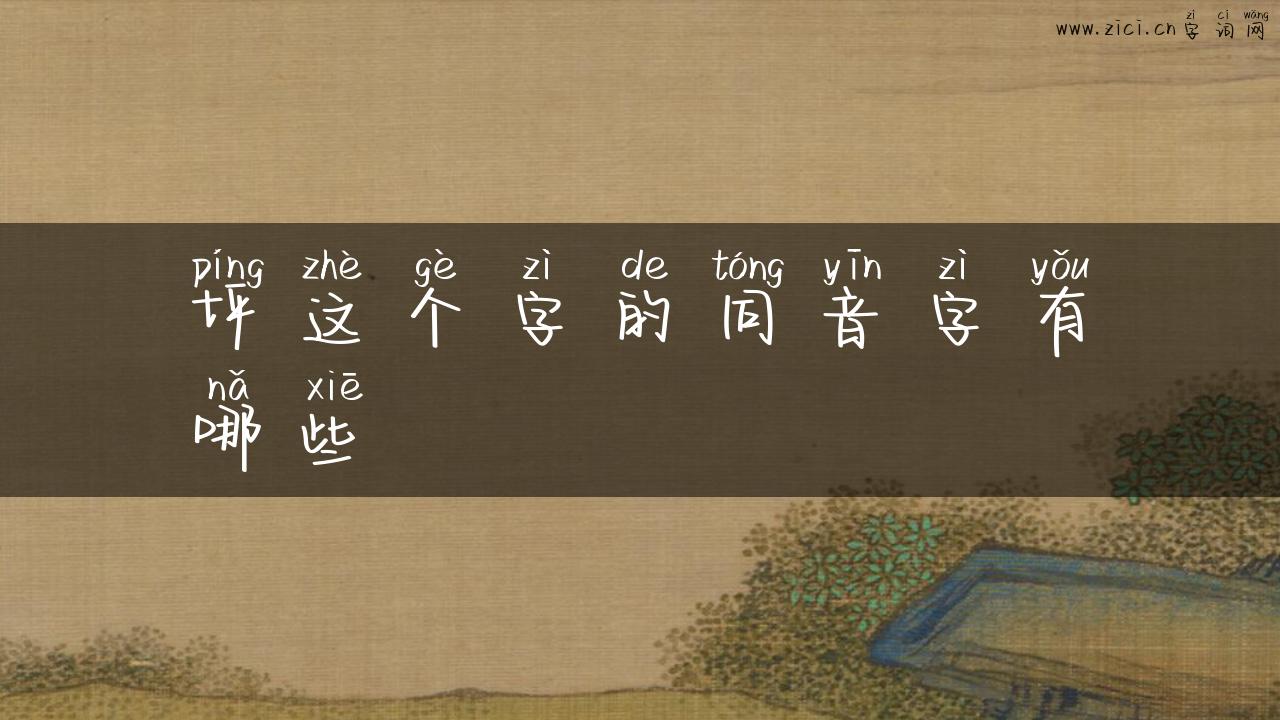 zì cí wǎng
www.zici.cn 字 词 网
píng zhè gè zì de tóng yīn zì yǒu
坪 这 个 字 的 同 音 字 有
nǎ xiē
哪 些